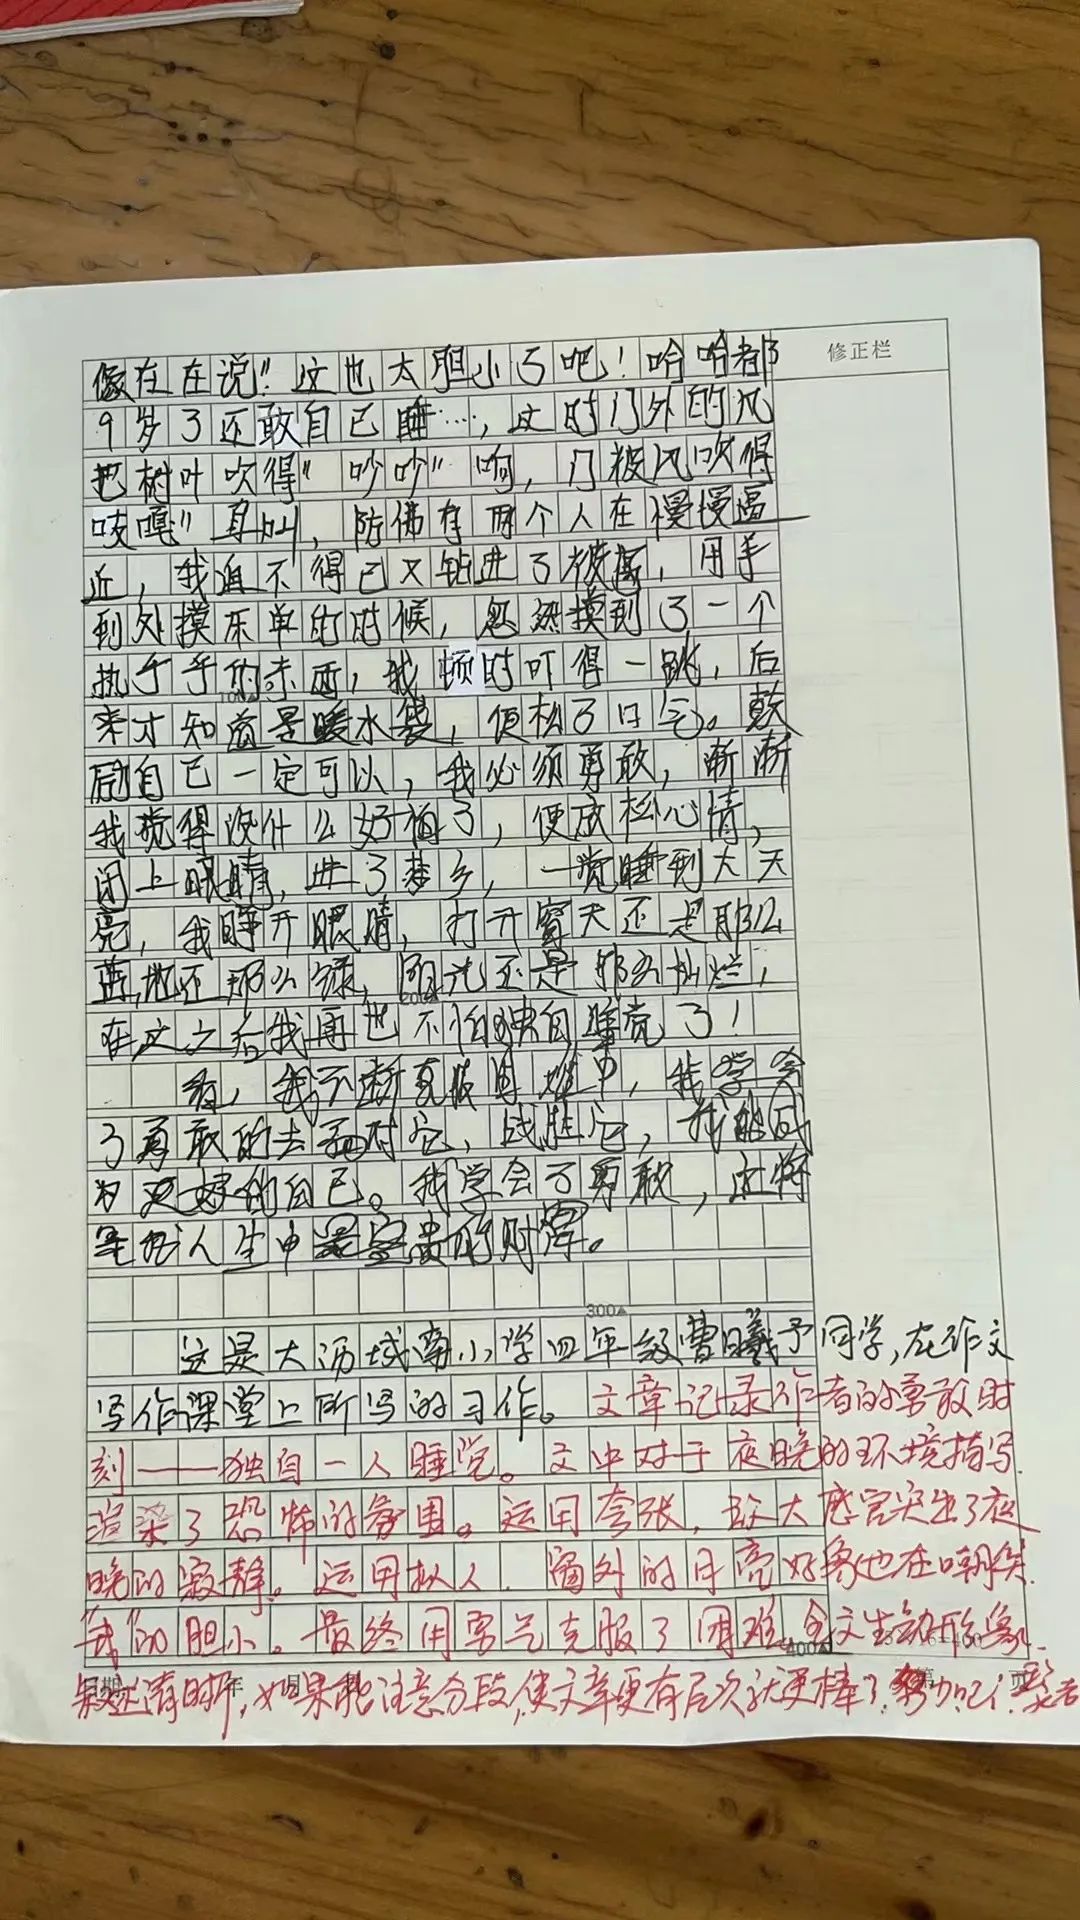 像在在说"这也太胆小了吧！哈哈都
9岁了还敢自己睡…，这时门外的风
把树叶吹得"吵吵"响，门被风吹得
吱嘎"直叫，仿佛有两个人在慢慢逼
近，我迫不得已又钻进了被窝，用手
到处摸床单的时候，忽然摸到了一个
热乎乎的东西，我顿时吓得一跳，后
来才知道是暖水袋，便松了口气。鼓
励自己一定可以，我必须勇敢，渐渐
我觉得没什么好怕了，便放松心情，
闭上眼睛，进了梦乡，一觉睡到大天
亮，我睁开眼睛，打开窗天还是那么
蓝，地还那么绿，阳光还是那么灿烂，
在这之后我再也不怕独自睡觉了！
看，我不断克服困难中，我学会
了勇敢的去面对它，战胜它，我能成
为更好的自己。我学会了勇敢，这将
是我人生中最宝贵的财富。
300
这是大沥城南小学四年级曹曦予同学，在作文
写作课堂上所写的习作。文章记录作者的勇敢时
刻——独自一人睡觉。文中对于夜晚的环境描写
渲染了恐怖的氛围。运用夸张，放大感官突出了夜
晚的寂静。运用拟人，窗外的月亮好象也在嘲笑
"我"的胆小。最终用勇气克服了困难。全文生动形象，
叙述清晰，如果能注意分段，使文章更有层次就更棒了
修正栏
100
200
400
年 月
第 页